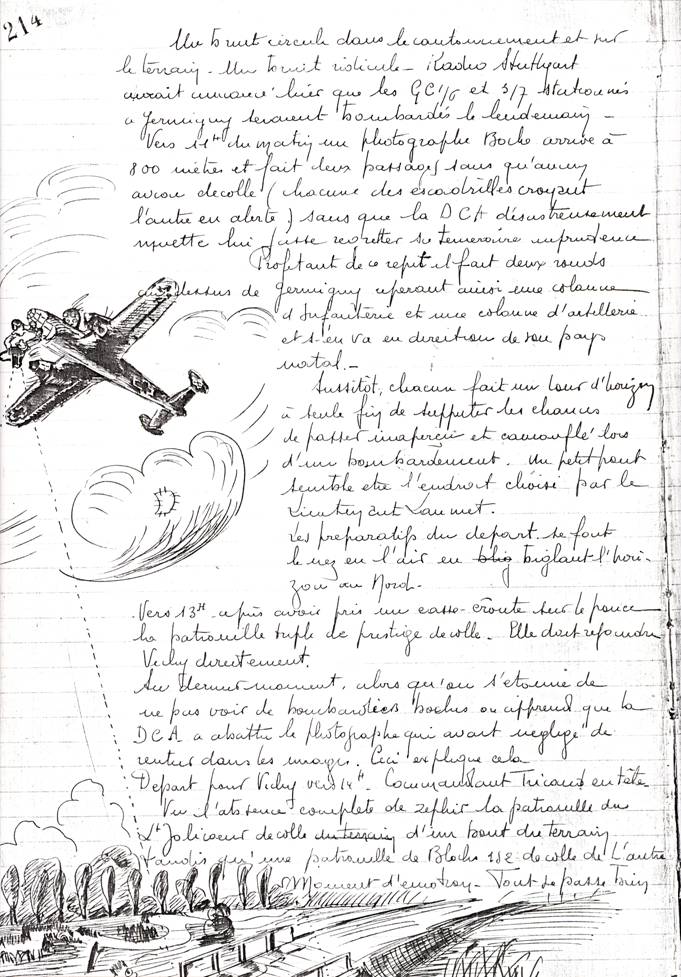 214
Un bruit circule dans le cantonnement et sur
le terrain - Un bruit ridicule - Radio Stuttgart
aurait annoncé hier que les GC 1/6 et 3/7 stationnés
a Germigny seraient bombardés le lendemain -
Vers 11H du matin un photographe Boche arrive à
800 mètres et fait deux passages sans qu'aucun
avion decolle (chacune des escadrilles croyant
l'autre en alerte) sans que la DCA désastreusement
muette lui fasse regretter sa temeraire imprudence
Profitant de ce repit il fait deux ronds
au dessus de Germigny reperant ainsi une colonne
d'Infanterie et une colonne d'artillerie
et s'en va en direction de son pays
natal. -
Aussitôt, chacun fait un tour d'horizon
à seule fin de supputer les chances
de passer inaperçu et camouflé lors
d'un bombardement. Un petit pont
semble etre l'endroit choisi par le
Lieutenant
Les preparatifs du depart se font
le nez en l'air en biglant l'hori-
zon au Nord.
Vers 13H après avoir pris un casse-croute sur le pouce
la patrouille triple de prestige decolle. Elle doit rejoindre
Vichy directement.
Au dernier moment, alors qu'on s'etonne de
ne pas voir de bombardiers boches on apprend que la
DCA a abattu le photographe qui avait negligé de
rentrer dans les nuages. Ceci explique cela
Depart pour Vichy vers 14H. Commandant Tricaud en tête
Vu l'absence complete de zephir la patrouille du
Lt Jolicoeur decolle du terrain d'un bout du terrain
tandis qu'une patrouille de Blochs 152 decolle de l'autre
Moment d'emotion - Tout se passe bien